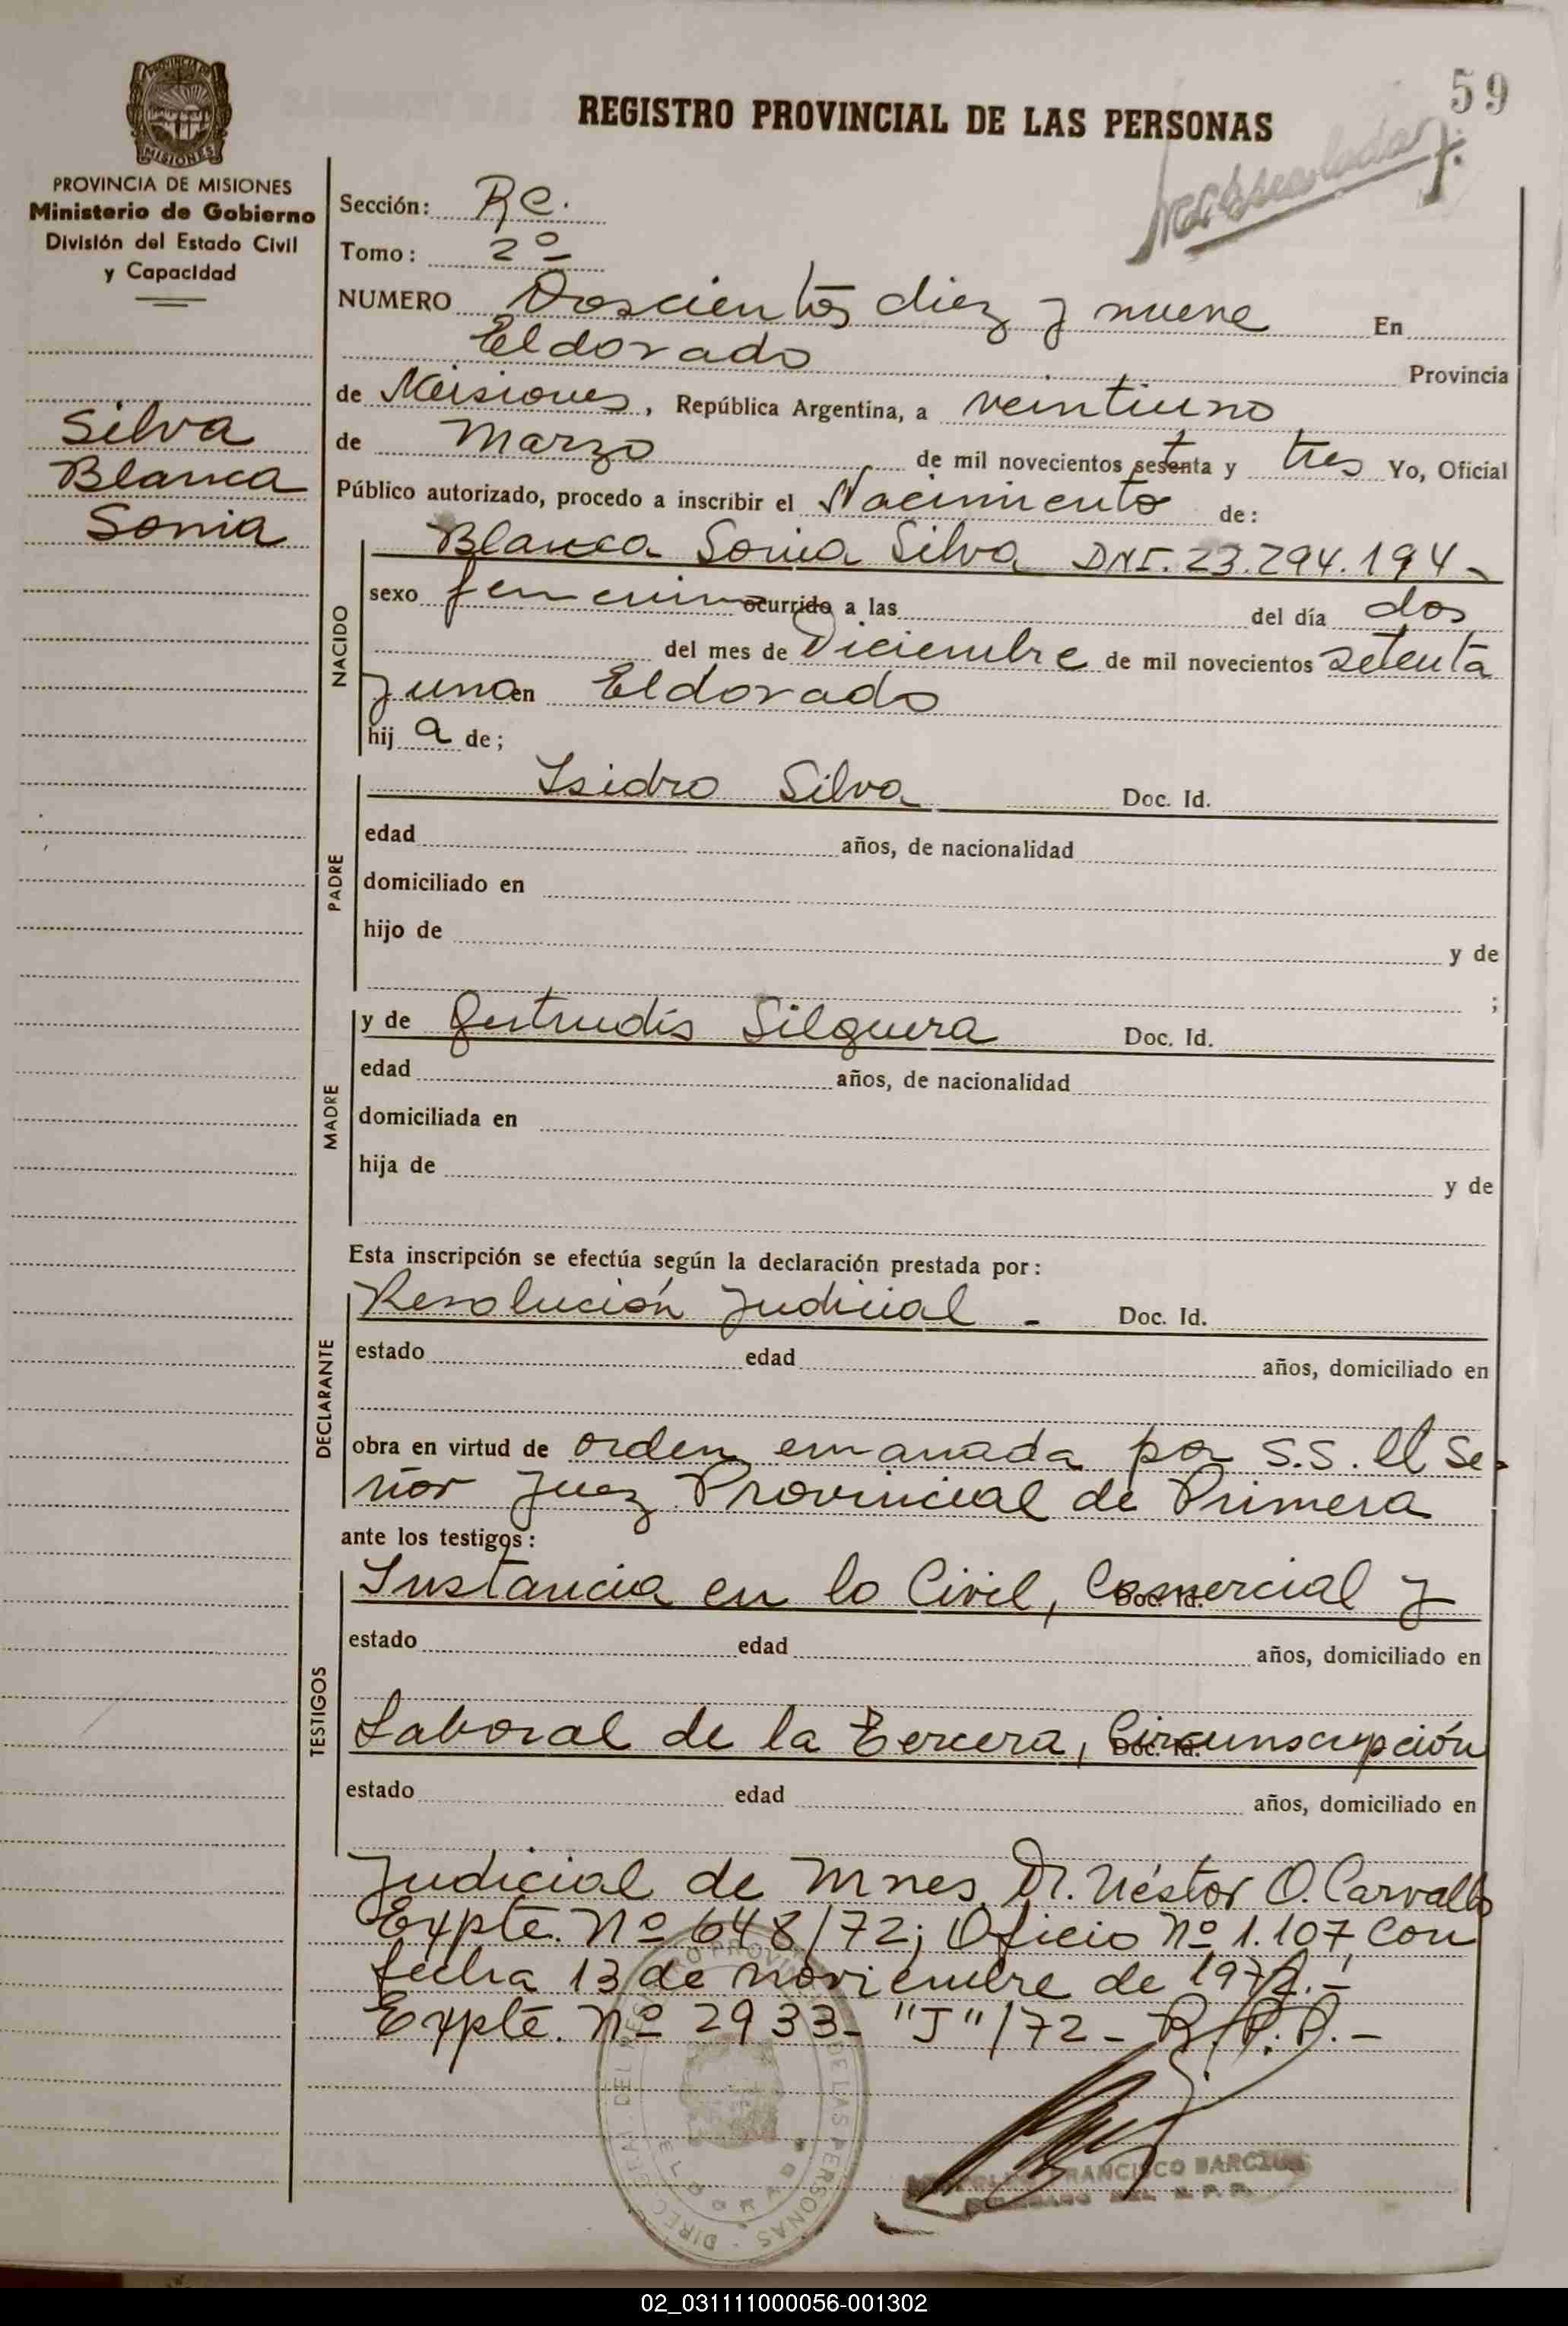 59
REGISTRO PROVINCIAL DE LAS PERSONAS
PROVINCIA DE MISIONES
Ministerio de Gobierno
División del Estado Civil
y Capacidad
Silva
Blanca
Sonia
Sección: RC.
Tomo: 2º
NUMERO Doscientos diez y nueve En
Eldorado Provincia
de Misiones, República Argentina, a veintiuno
de Marzo de mil novecientos setenta y tres Yo, Oficial
Público autorizado, procedo a inscribir el Nacimiento de:
NACIDO
Blanca Sonia Silva DNI. 23.294.194-
sexo femenino ocurrido a las del día dos
del mes de Diciembre de mil novecientos setenta
y uno en Eldorado
hij a de;
PADRE
Isidro Silva Doc. Id.
edad años, de nacionalidad
domiciliado en
hijo de y de
;
MADRE
y de Gertrudis Silguera Doc. Id.
edad años, de nacionalidad
domiciliada en
hija de y de
Esta inscripción se efectúa según la declaración prestada por:
DECLARANTE
Resolución Judicial - Doc. Id.
estado edad años, domiciliado en
obra en virtud de orden emanada por S.S. el Se-
ñor Juez Provincial de Primera
ante los testigos:
TESTIGOS
Instancia en lo Civil, Comercial y
Doc. Id.
estado edad años, domiciliado en
Laboral de la tercera, Circunscripción
Doc. Id.
estado edad años, domiciliado en
Judicial de Mnes, Dr. Néstor O. Carvallo
Expte. Nº 648/72; Oficio Nº 1.107, con
fecha 13 de noviembre de 1972.-
Expte. Nº 2933- "J"/72- R.P.P.-
FRANCISCO
02_031111000056-001302